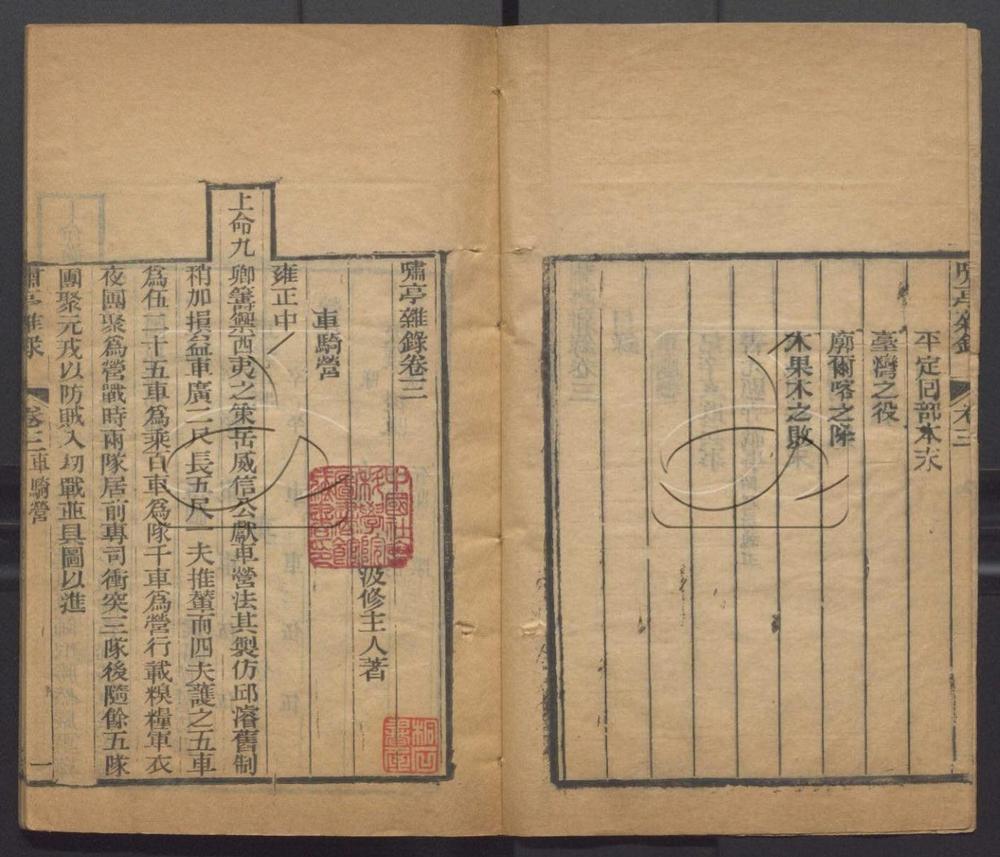 嘯亭雜錄 卷三
平定回部本末
臺灣之役
廓爾喀之降
木果木之敗
嘯亭雜錄卷三
汲修主人著
車騎營
雍正中
上命九卿籌禦西夷之策岳威信公獻車營法其製仿邱濬舊制
稍加損益車廣二尺長五尺一夫推輦而四夫護之五車
爲伍二十五車爲乘百車爲隊千車爲營行載糗糧軍衣
夜團聚爲營戰時兩隊居前專司衝突三隊後隨餘五隊
團聚元戎以防賊人刧戰並具圖以進
嘯亭雜錄 卷三車騎營 一